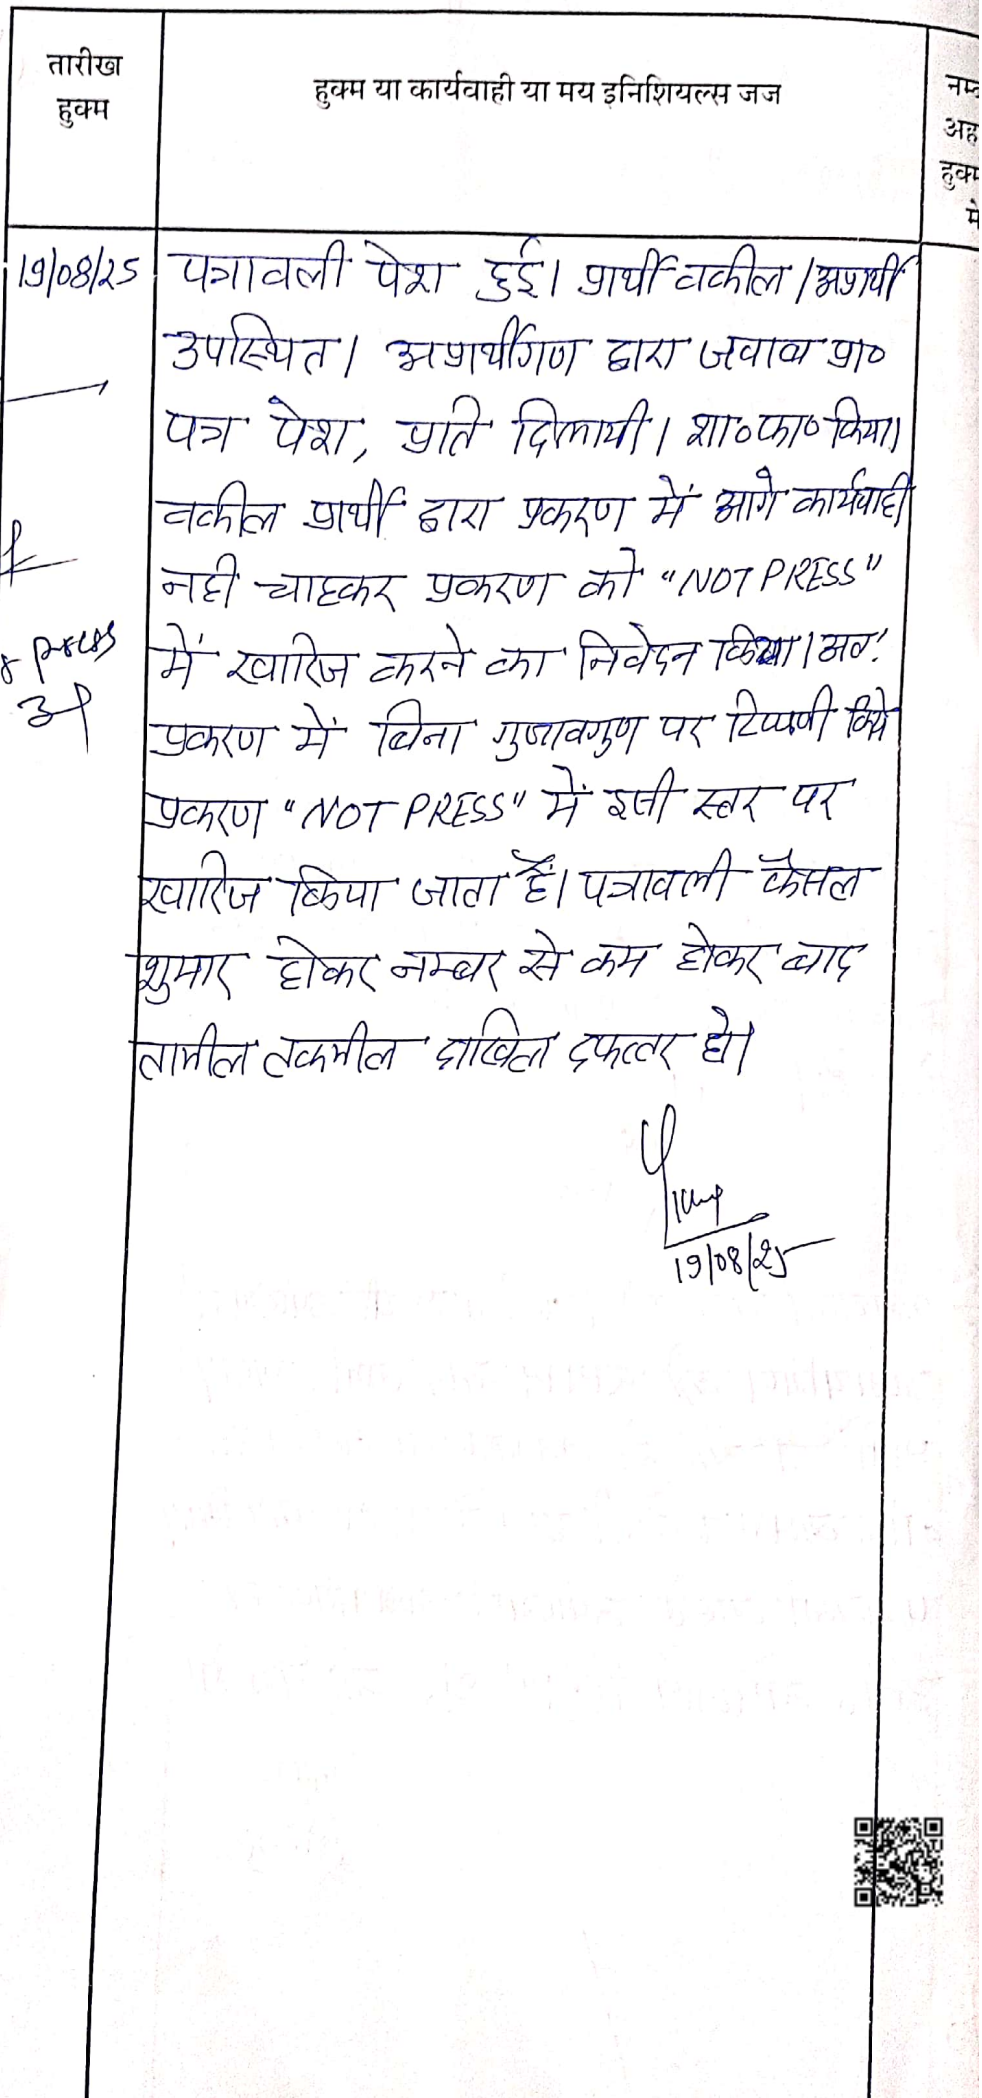 तारीख
हुक्म
हुक्म या कार्यवाही या मय इनिशियल्स जज
नम्ब
अह
हुक्म
मे
19/08/25 पत्रावली पेश हुई। प्रार्थी वकील / अप्रार्थी
उपस्थित। अप्रार्थीगण द्वारा जवाब प्रा०
पत्र पेश, प्रति दिलायी। शा०फा० किया।
वकील प्रार्थी द्वारा प्रकरण में आगे कार्यवाही
नही चाहकर प्रकरण को "NOT PRESS"
में खारिज करने का निवेदन किया। अतः
प्रकरण में बिना गुणावगुण पर टिप्पणी किये
प्रकरण "NOT PRESS" में इसी स्तर पर
खारिज किया जाता हैं। पत्रावली फैसल
शुमार होकर नम्बर से कम होकर बाद
तामील तकमील दाखिल दफ्तर हो।
19/08/25